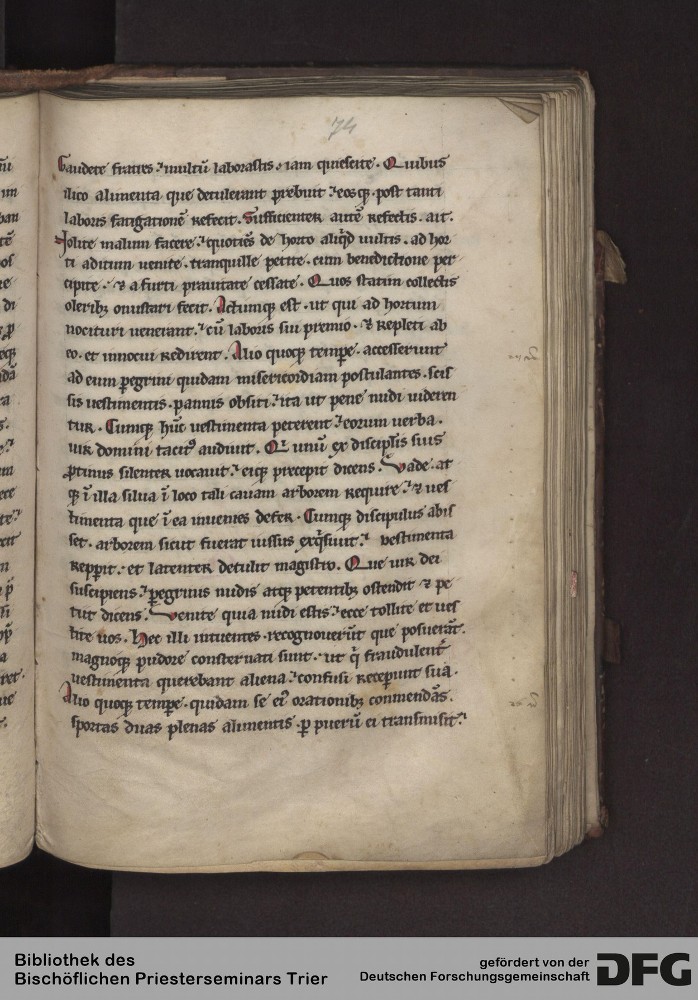 74
Gaudete fratres ⁊ multū laborastis · iam quiescite · Quibus
ilico alimenta que detulerant prebuit ⁊ eosq; post tanti
laboris fatigationē refecit · Sufficienter autē refectis · ait ·
Nolite malum facere ⁊ quotiēs de horto aliq̇d uultis · ad hor
ti aditum uenite · tranquille petite · cum benedictione per
cipite · ⁊ a furti prauitate cessate · Quos statim collectis
olerib; onustari fecit · Actumq; est · ut qui ad hortum
nocituri uenerant · cū laboris sui premio · ⁊ repleti ab
eo · et innocui redirent · Alio quoq; tempr̄e · accesserunt
ad eum pegrini quidam misericordiam postulantes · scis
sis uestimentis · pannis obsiti · ita ut pene nudi uideren
tur · Cumq; hūc uestimenta peterent · eorum uerba ·
uir domini tacit⁹ audiuit · Qi unū ex discipl̄is suis
ꝓtinus silenter uocauit · eiq; precepit dicens · Vade · at
q; ī illa silua ī loco tali cauam arborem require · ⁊ ues
timenta que ī ea inuenies defer · Cumq; discipulus abis
set · arborem sicut fuerat iussus exq̇siuit · uestimenta
repꝑit · et latenter detulit magistro · Que uir dei
suscipiens · ꝑegrinus nudis atq; petentib; ostendit ⁊ pe
tiit dicens · Venite quia nudi estis · ecce tollite et ues
tite uos · Hec illi intuentes · recognouerūt que posuerāt ·
magnoq; pudore consternati sunt · ut q̇ fraudulent̄
uestimenta querebant aliena · confusi receperunt sua ·
Alio quoq; tempr̄e · quidam se ei⁹ orationib; commendās ·
sportas duas plenas alimentis · ꝑ puerū ei transmisit ·
Bibliothek des
Bischöflichen Priesterseminars Trier
gefördert von der
Deutschen Forschungsgemeinschaft
DFG